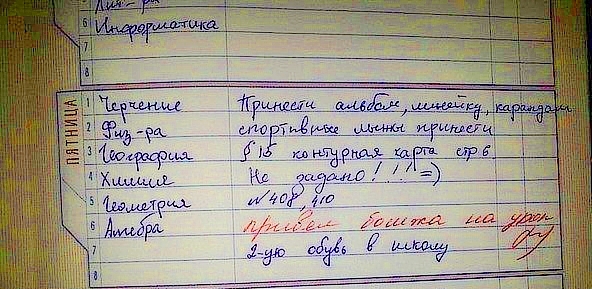 Лит-ра
6 Информатика
7
8
ПЯТНИЦА
1 Черчение Принести альбом, линейку, карандаш
2 Физ-ра спортивные лыжы принести
3 География § 15 контурная карта стр 6.
4 Химия Не задано!!!! =)
5 Геометрия №408, 410
6 Алгебра привел бомжа на урок
7 2-ую обувь в школу
8